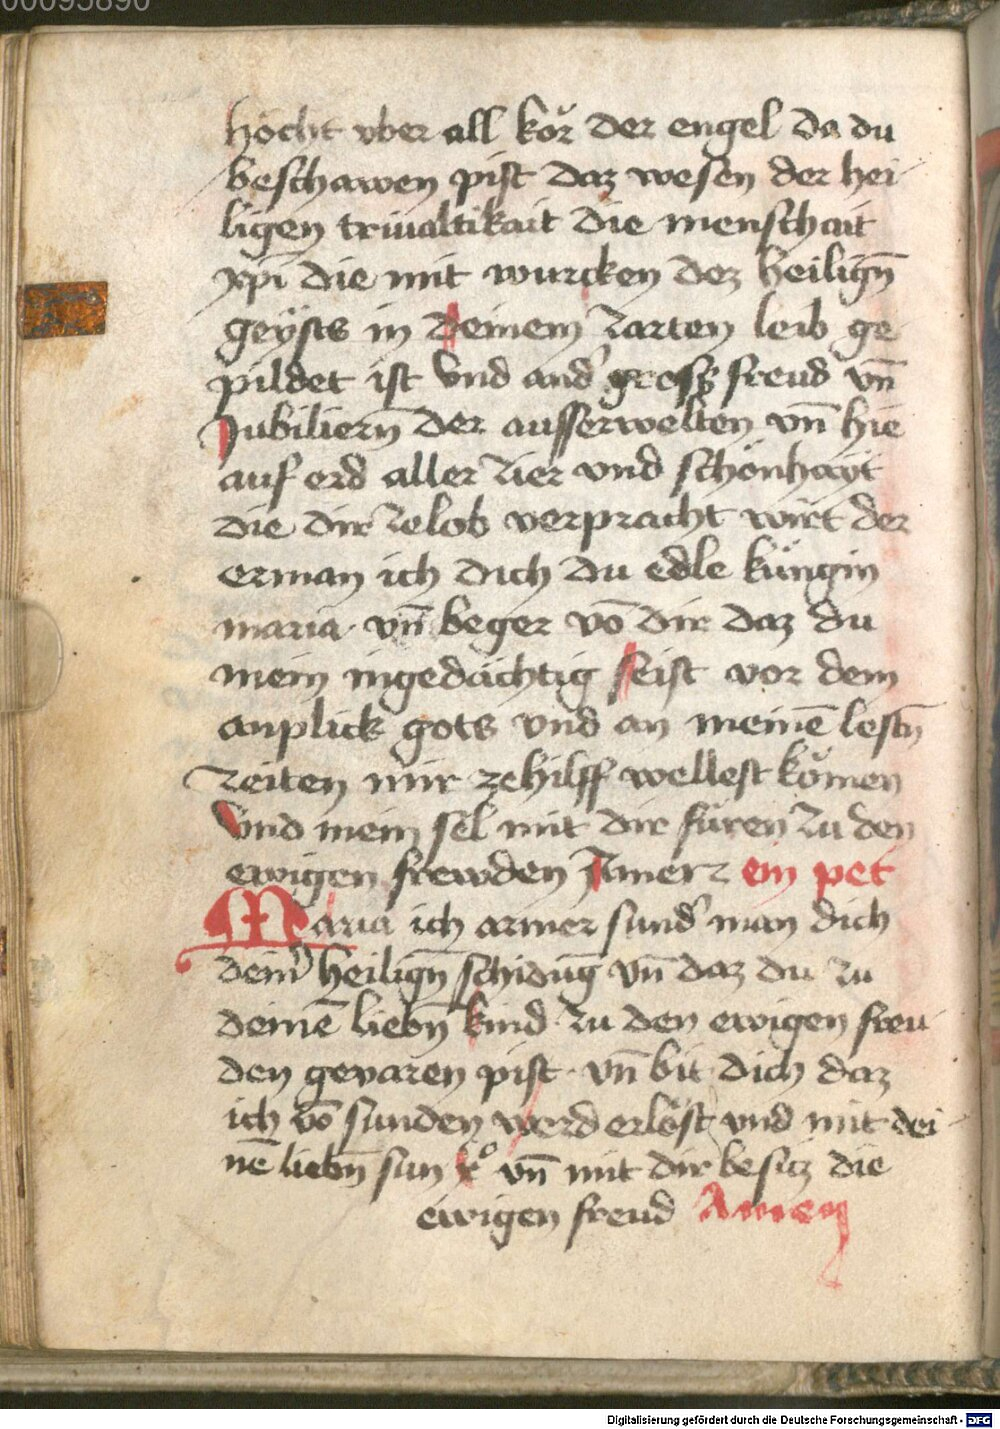 00095890
höcht vber all kör der engel da du
beschawen pist daz wesen der hei
ligen triualtikait die menschait
xp̄i die mit wurcken dez heilign̄
geÿsts in deinem zarten leib ge
pildet ist Vnd and' gross freud vn̄
Jubiliern̄ der ausserwelten vn̄ hie
auf erd aller zier vnd schönhayt
die dir zelob verpracht wirt der
erman ich dich du edle küngin
maria vn̄ beger vō dir daz du
mein ingedächtig seist vor dem
anplick gots vnd an meinē lestn̄
zeiten mir ze hilff wellest kömen
Vnd mein sel mit dir füren zu den
ewigen frewden Jmerz ein pet
Maria ich armer sund' man dich
dein' heilign̄ schidūg vn̄ daz du zu
deinē liebn̄ kind zu den ewigen freu
den gevaren pist vn̄ bit dich daz
ich vō sunden werd erlöst vnd mit dei
nē liebn̄ sun x° vn̄ mit dir besitz die
ewigen freud Amen
Digitalisierung gefördert durch die Deutsche Forschungsgemeinschaft - DFG